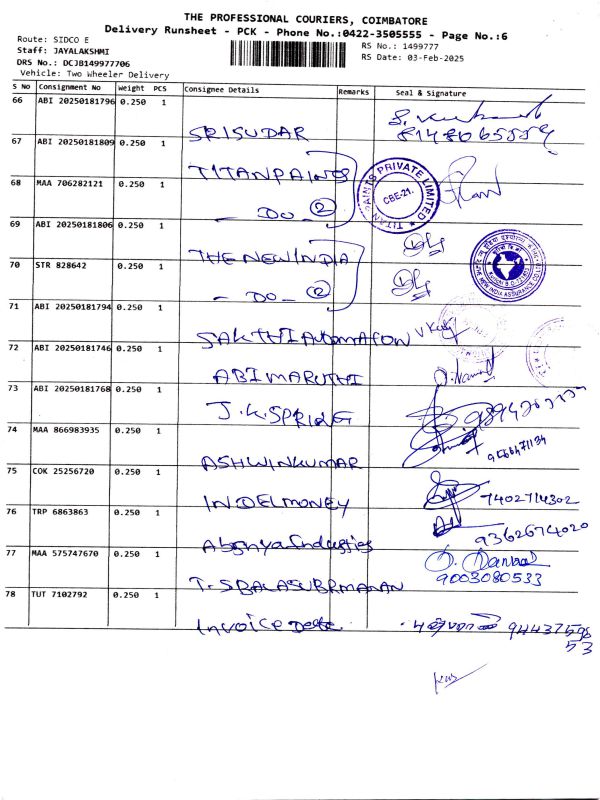 THE PROFESSIONAL COURIERS, COIMBATORE
Delivery Runsheet - PCK - Phone No.:0422-3505555 - Page No.:6
Route: SIDCO E
RS No.: 1499777
Staff: JAYALAKSHMI
RS Date: 03-Feb-2025
DRS No.: DCJB149977706
Vehicle: Two Wheeler Delivery
S No Consignment No Weight PCS Consignee Details Remarks Seal & Signature
66 ABI 20250181796 0.250 1
SRISUDAR 8148065559
67 ABI 20250181809 0.250 1
TITANPAINTS
TITAN PAINTS PRIVATE LIMITED
CBE-21.
68 MAA 706282121 0.250 1
- DO - 2
69 ABI 20250181806 0.250 1
THE NEW INDIA
70 STR 828642 0.250 1
- DO - 2
71 ABI 20250181794 0.250 1
SAKTHI Automation
72 ABI 20250181746 0.250 1
ABIMARUTHI
73 ABI 20250181768 0.250 1
J.K.SPRING
74 MAA 866983935 0.250 1
ASHWINKUMAR
75 COK 25256720 0.250 1
INDELMONEY 7402714302
76 TRP 6863863 0.250 1
Industries 9362674020
77 MAA 575747670 0.250 1
T.SBALASUBRMANAN 9003080533
78 TUT 7102792 0.250 1
Invoice Date 94437596
53